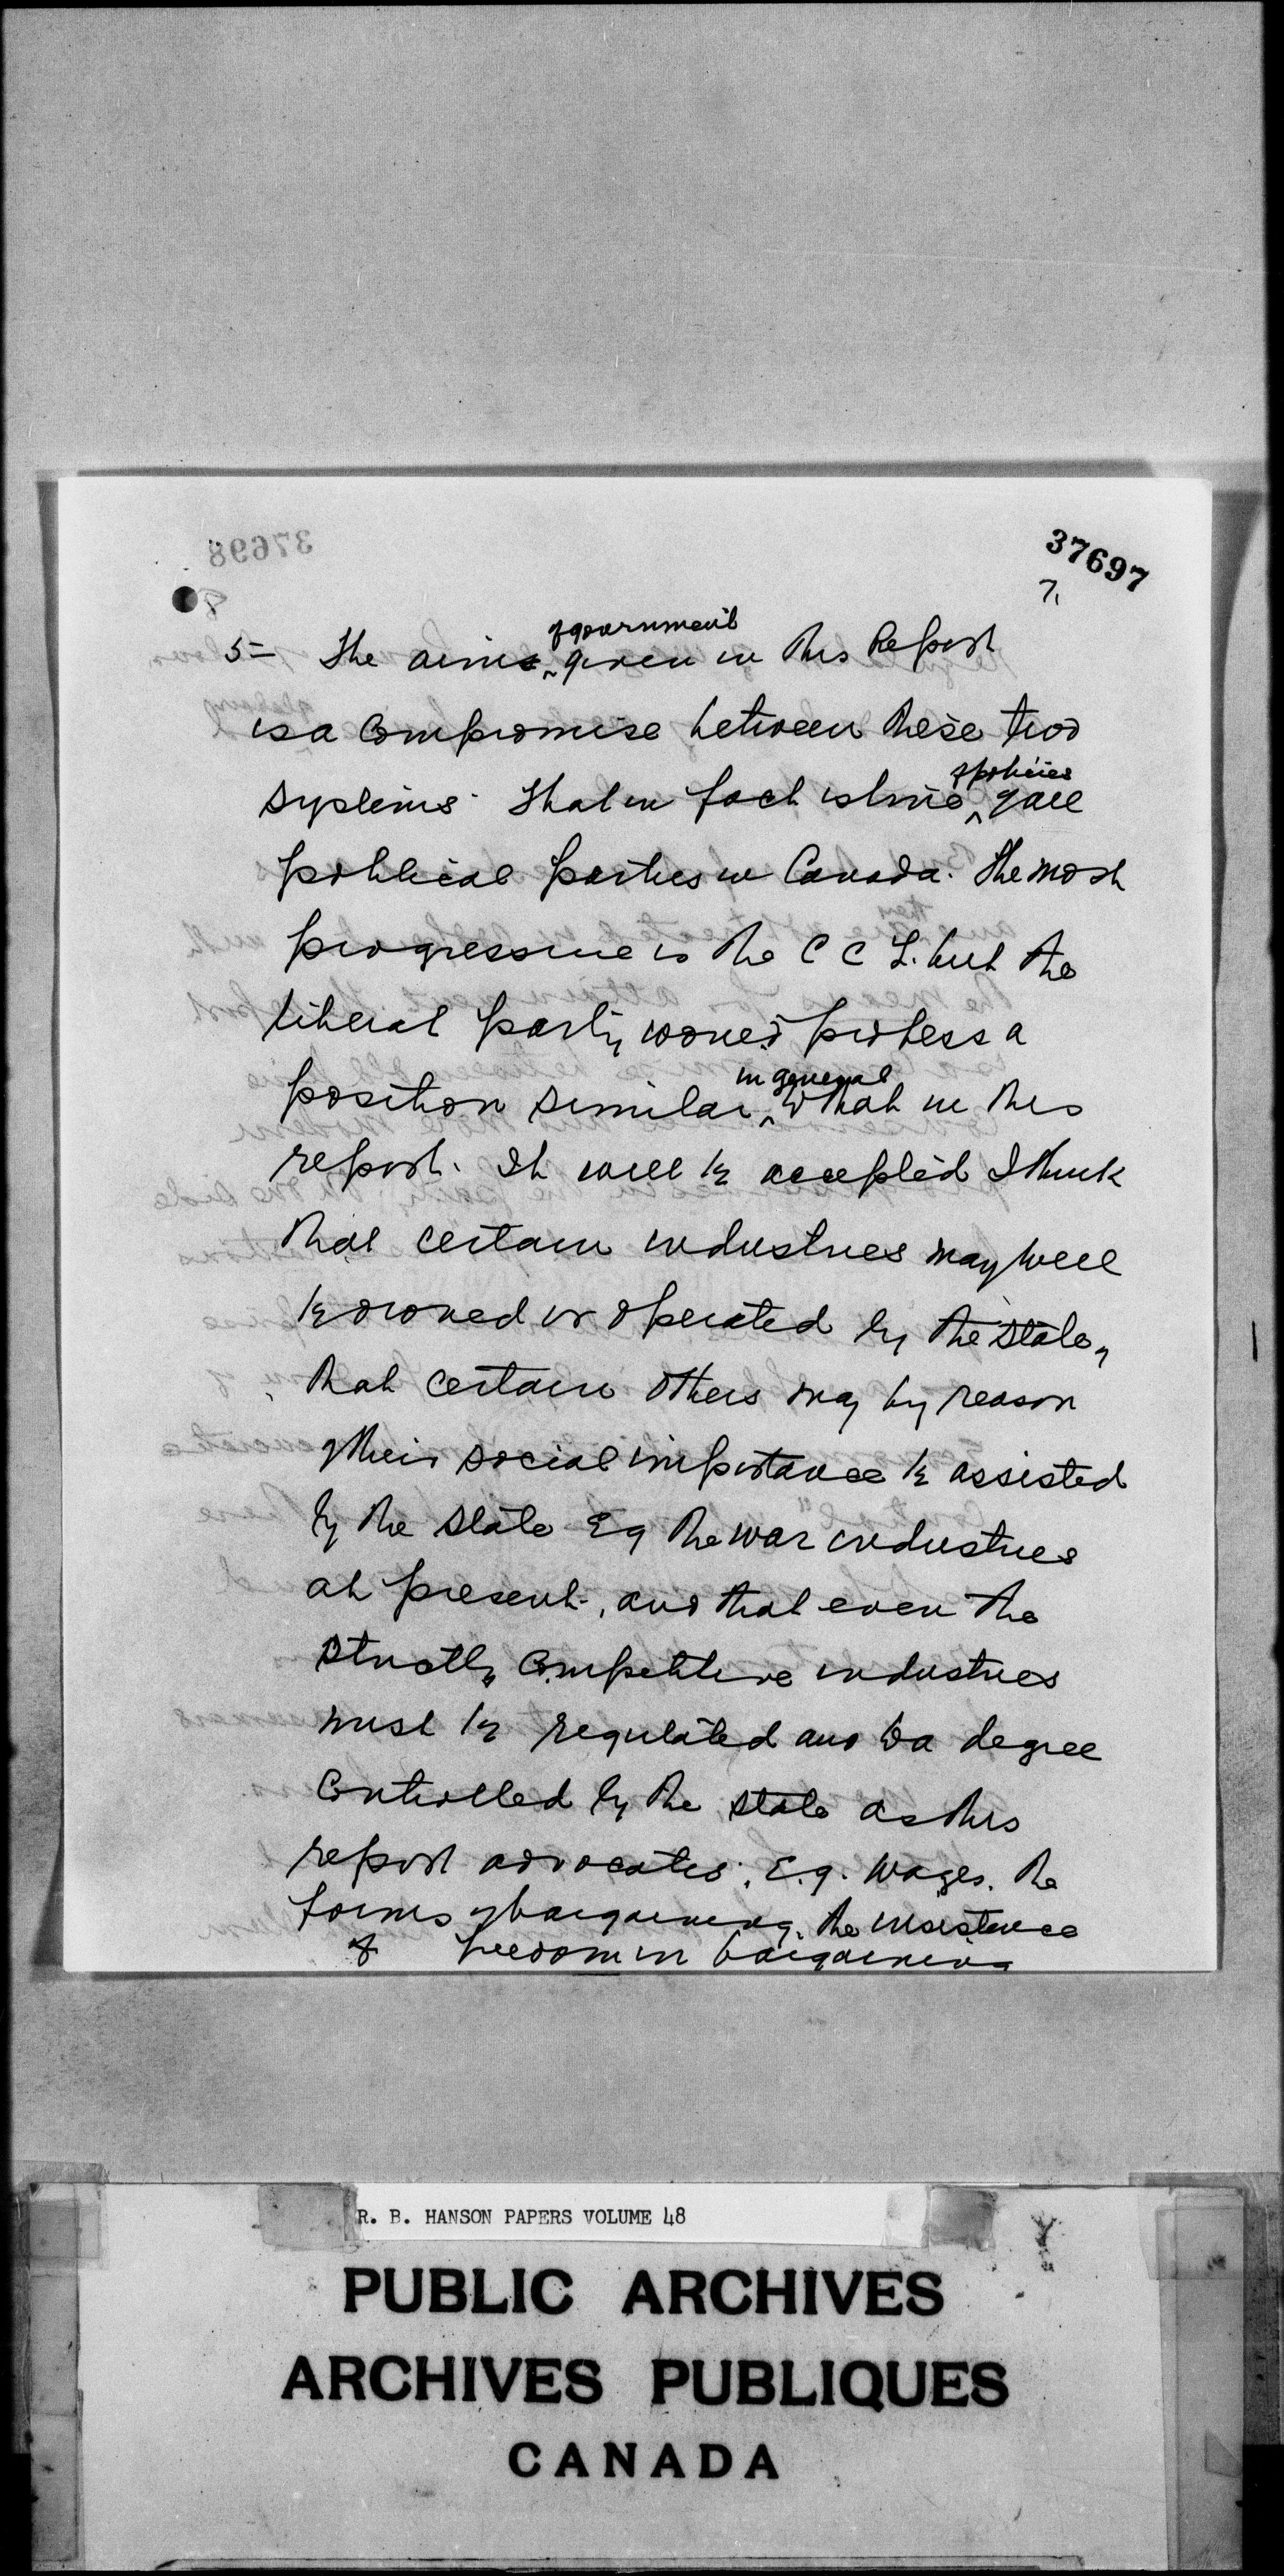 37697
7.
5- The aims of government given in this Report
is a compromise between these two
systems. That in fact is true of policies of all
political parties in Canada. The most
progressive is the C C F. but the
liberal party would profess a
position similar in general to that in this
report. It will be accepted I think
that certain industries may well
be owned or operated by the state,
that certain others may by reason
of their social importance be assisted
by the state Eg the war industries
at present, and that even the
strictly competitive industries
must be regulated and to a degree
controlled by the state as this
report advocates. E.g. wages. the
forms of bargaining, the insistence
of freedom in bargaining
R. B. HANSON PAPERS VOLUME 48
PUBLIC ARCHIVES
ARCHIVES PUBLIQUES
CANADA